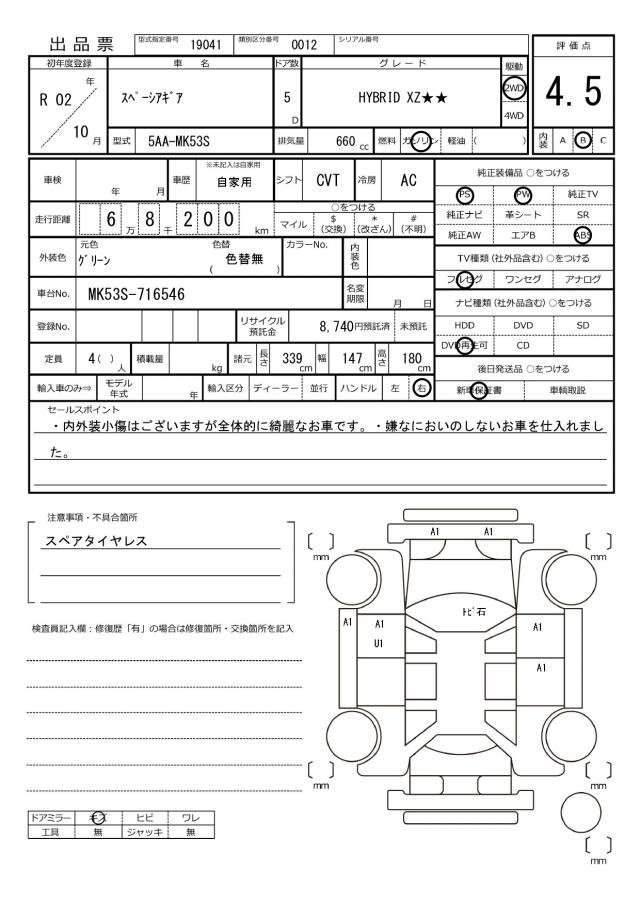 出品票
型式指定番号 19041 類別区分番号 0012 シリアル番号
初年度登録 車名 ドア数 グレード 駆動 評価点
R 02 年 スペーシアギア 5 D HYBRID XZ★★ 2WD 4WD 4.5
10 月 型式 5AA-MK53S 排気量 660 cc 燃料 ガソリン 軽油 ( ) 内装 A B C
車検 年 月 車歴 ※未記入は自家用 自家用 シフト CVT 冷房 AC
純正装備品 ○をつける
PS PW 純正TV
純正ナビ 革シート SR
純正AW エアB ABS
走行距離 6 万 8 千 200 km ○をつける
マイル $ (交換) * (改ざん) # (不明)
外装色 元色 グリーン 色替 色替無 ( ) カラーNo. 内装色
TV種類 (社外品含む) ○をつける
フルセグ ワンセグ アナログ
車台No. MK53S-716546 名変期限 月 日
ナビ種類 (社外品含む) ○をつける
HDD DVD SD
DVD再生可 CD
登録No. リサイクル預託金 8,740円預託済 未預託
定員 4( ) 人 積載量 kg 諸元 長さ 339 cm 幅 147 cm 高さ 180 cm
後日発送品 ○をつける
新車保証書 車輌取説
輸入車のみ⇒ モデル年式 年 輸入区分 ディーラー 並行 ハンドル 左 右
セールスポイント
・内外装小傷はございますが全体的に綺麗なお車です。・嫌なにおいのしないお車を仕入れまし
た。
注意事項・不具合箇所
スペアタイヤレス
検査員記入欄：修復歴「有」の場合は修復箇所・交換箇所を記入
A1 A1
mm mm
トビ石
A1 A1 A1
U1
A1
mm mm
mm
ドアミラー キズ ヒビ ワレ
工具 無 ジャッキ 無